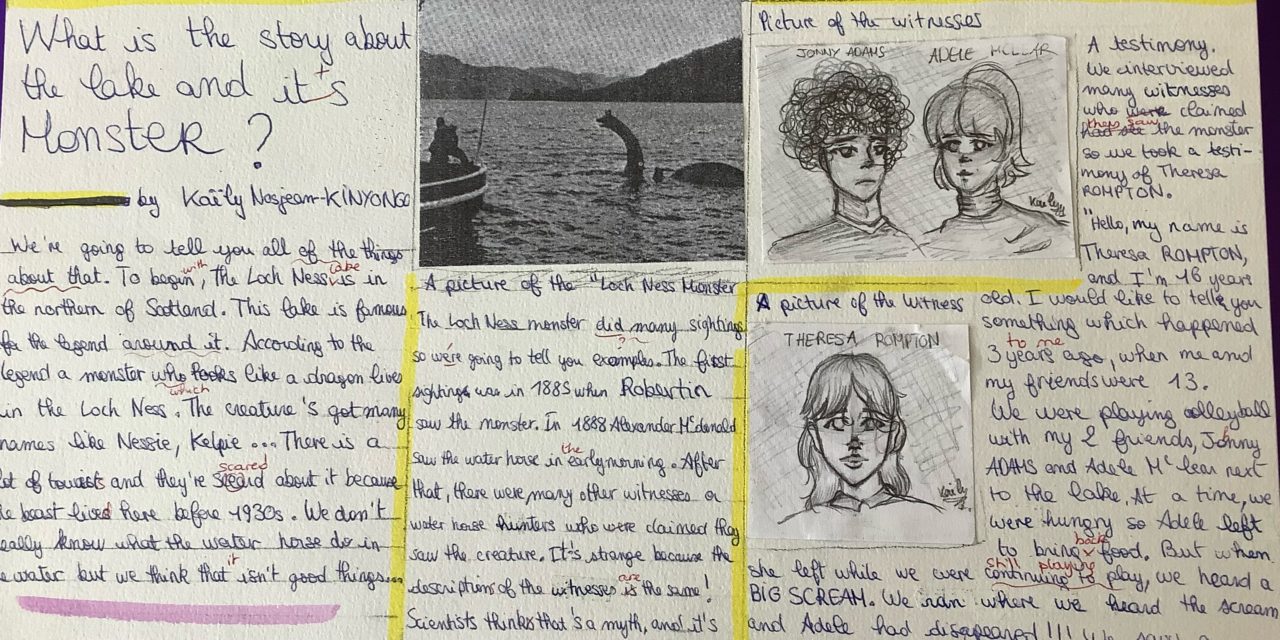 What is the story about
the lake and it's
Monster ?
by Kaïly Nosjean-KINYONGO
We're going to tell you all of the things
about that. To begin with, The Loch Ness lake is in
the northern of Scotland. This lake is famous
for the legend around it. According to the
legend a monster who looks which like a dragon lives
in the Loch Ness. The creature's got many
names like Nessie, Kelpie ... There is a
lot of tourists and they're scared about it because
beast lived here before 1930s. We don't
really know what the water horse do in
water but we think that it isn't good things...
A picture of the "Loch Ness Monster
The Loch Ness monster did many sightings
?
so we're going to tell you examples. The first
sightings was in 1885 when Robertin
saw the monster. In 1888 Alexander McDonald
saw the water horse in the early morning. After
that, there were many other witnesses or
water horse hunters who were claimed they
saw the creature. It's strange because the
description of the witnesses are is the same!
Scientists thinks that's a myth, and it's
Picture of the witnesses
JONNY ADAMS
ADELE
Kaïly
A testimony.
We interviewed
many witnesses
who were claimed
they saw
had see the monster
so we took a testi-
mony of Theresa
ROMPTON.
"Hello, my name is
Theresa ROMPTON,
and I'm 16 years
old. I would like to tell you
something which happened
to me
3 years ago, when me and
my friends were 13.
We were playing volleyball
with my 2 friends, Johnny
ADAMS and Adele Mc lear next
to the lake. At a time, we
were hungry so Adele left
to bring back food. But when
A picture of the witness
THERESA ROMPTON
Kaïly
she left while we were still playing continuing to play, we heard a
BIG SCREAM. We ran where we heard the scream
and Adele had disappeared!!!